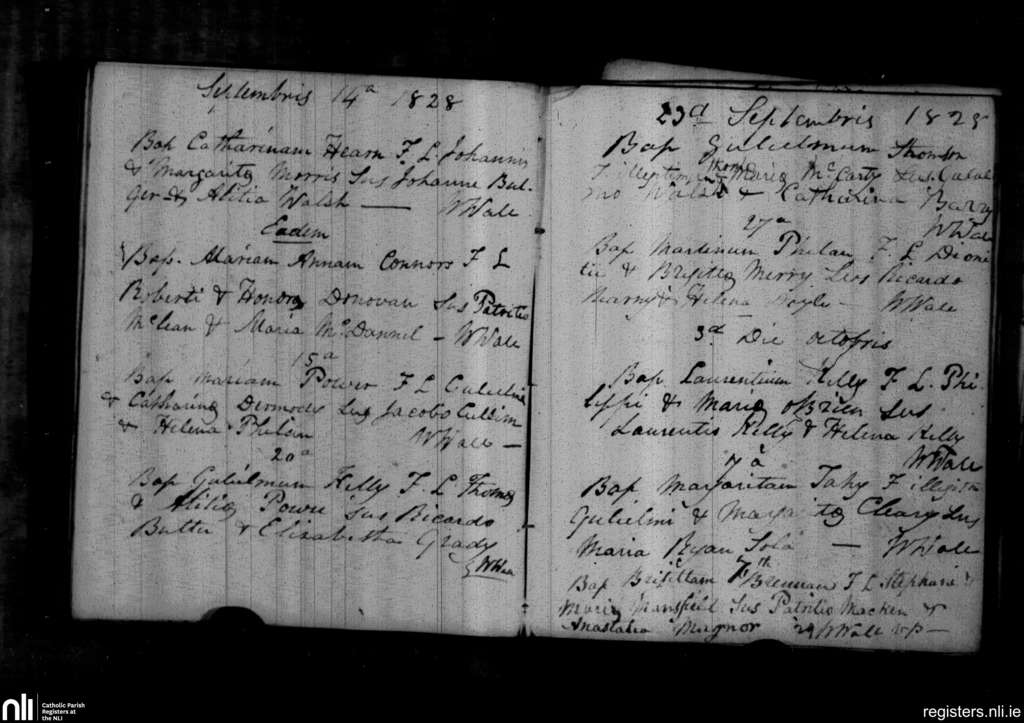 Septembris 14a 1828
Bap Catharinam Hearn F. L. Johannis
& Margarita Morris Sus Johanne Bul-
ger & Alitia Walsh — WWale
Eadem
Bap. Mariam Annam Connors F L
Roberti & Honora Donovan Sus Patritio
McLean & Maria McDannel - WWale
15a
Bap Mariam Power F L Gulielmi
& Catharina Dermody Sus Jacobo Cullin
& Helena Phelan WWale —
20a
Bap Gulielmum Kelly F. L Thoma
& Alitia Power Sus Ricardo
Butler & Elizabetha Grady
WWale
23d Septembris 1828
Bap Gulielmum Thomson
F illeptim Thom & Maria McCarty Sus Guliel
mo Walsh & Catharina Barry
WWale
27a
Bap Martinum Phelan F. L Dioni
tii & Brigitta Merry Sus Ricardo
& Helena Doyle — WWale
3d Die Octobris
Bap Laurentium Kelly F L. Phi-
lippi & Maria OBrien Sus
Laurentio Kelly & Helena Kelly
WWale
7a
Bap Margaritam Fahy F illegitm
Gulielmi & Margarita Cleary Sus
Maria Ryan Sola — WWale
7th
Bap Brigittam Brennan F L Stephani &
Maria Mansfield Sus Patritio Macken &
Anastasia Magnor WWale
nli
Catholic Parish
Registers at
the NLI
registers.nli.ie